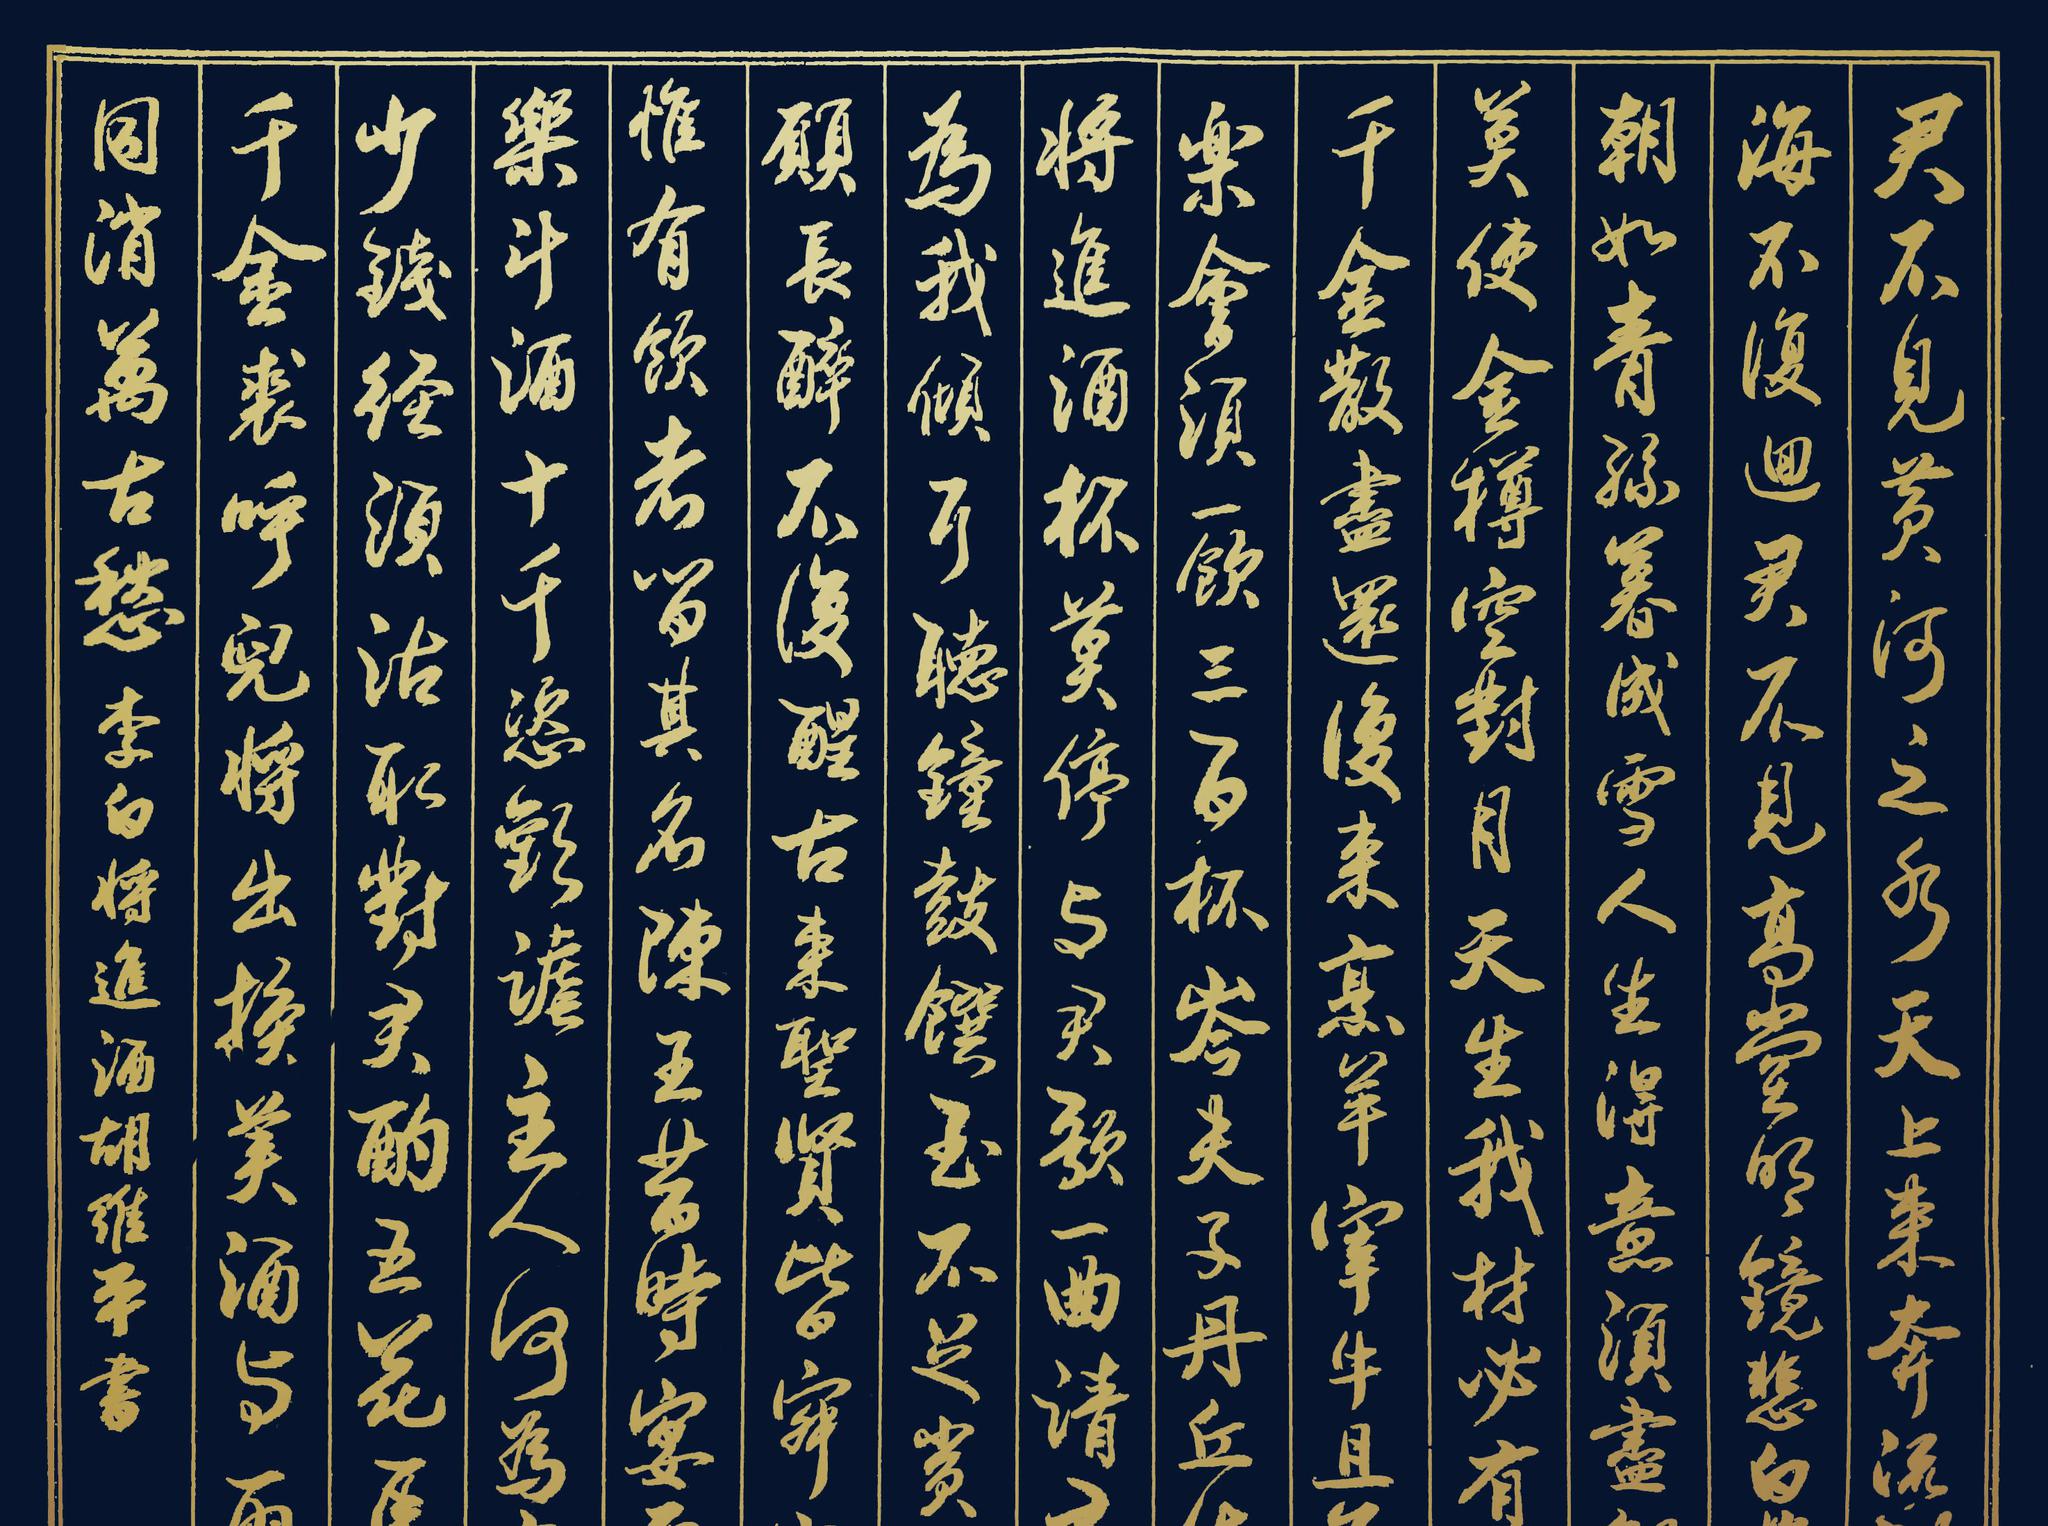 君不見黃河之水天上來奔流
海不復迴君不見高堂明鏡悲白
朝如青絲暮成雪人生得意須盡
莫使金樽空對月天生我材必有
千金散盡還復來烹羊宰牛且
樂會須一飲三百杯岑夫子丹丘
將進酒杯莫停与君歌一曲清
為我傾耳聽鐘鼓饌玉不足貴
願長醉不復醒古來聖賢皆寂
惟有飲者留其名陳王昔時宴
樂斗酒十千恣歡謔主人何為
少錢經須沽取對君酌五花馬
千金裘呼兒將出換美酒与
同消萬古愁 李白將進酒胡維平書